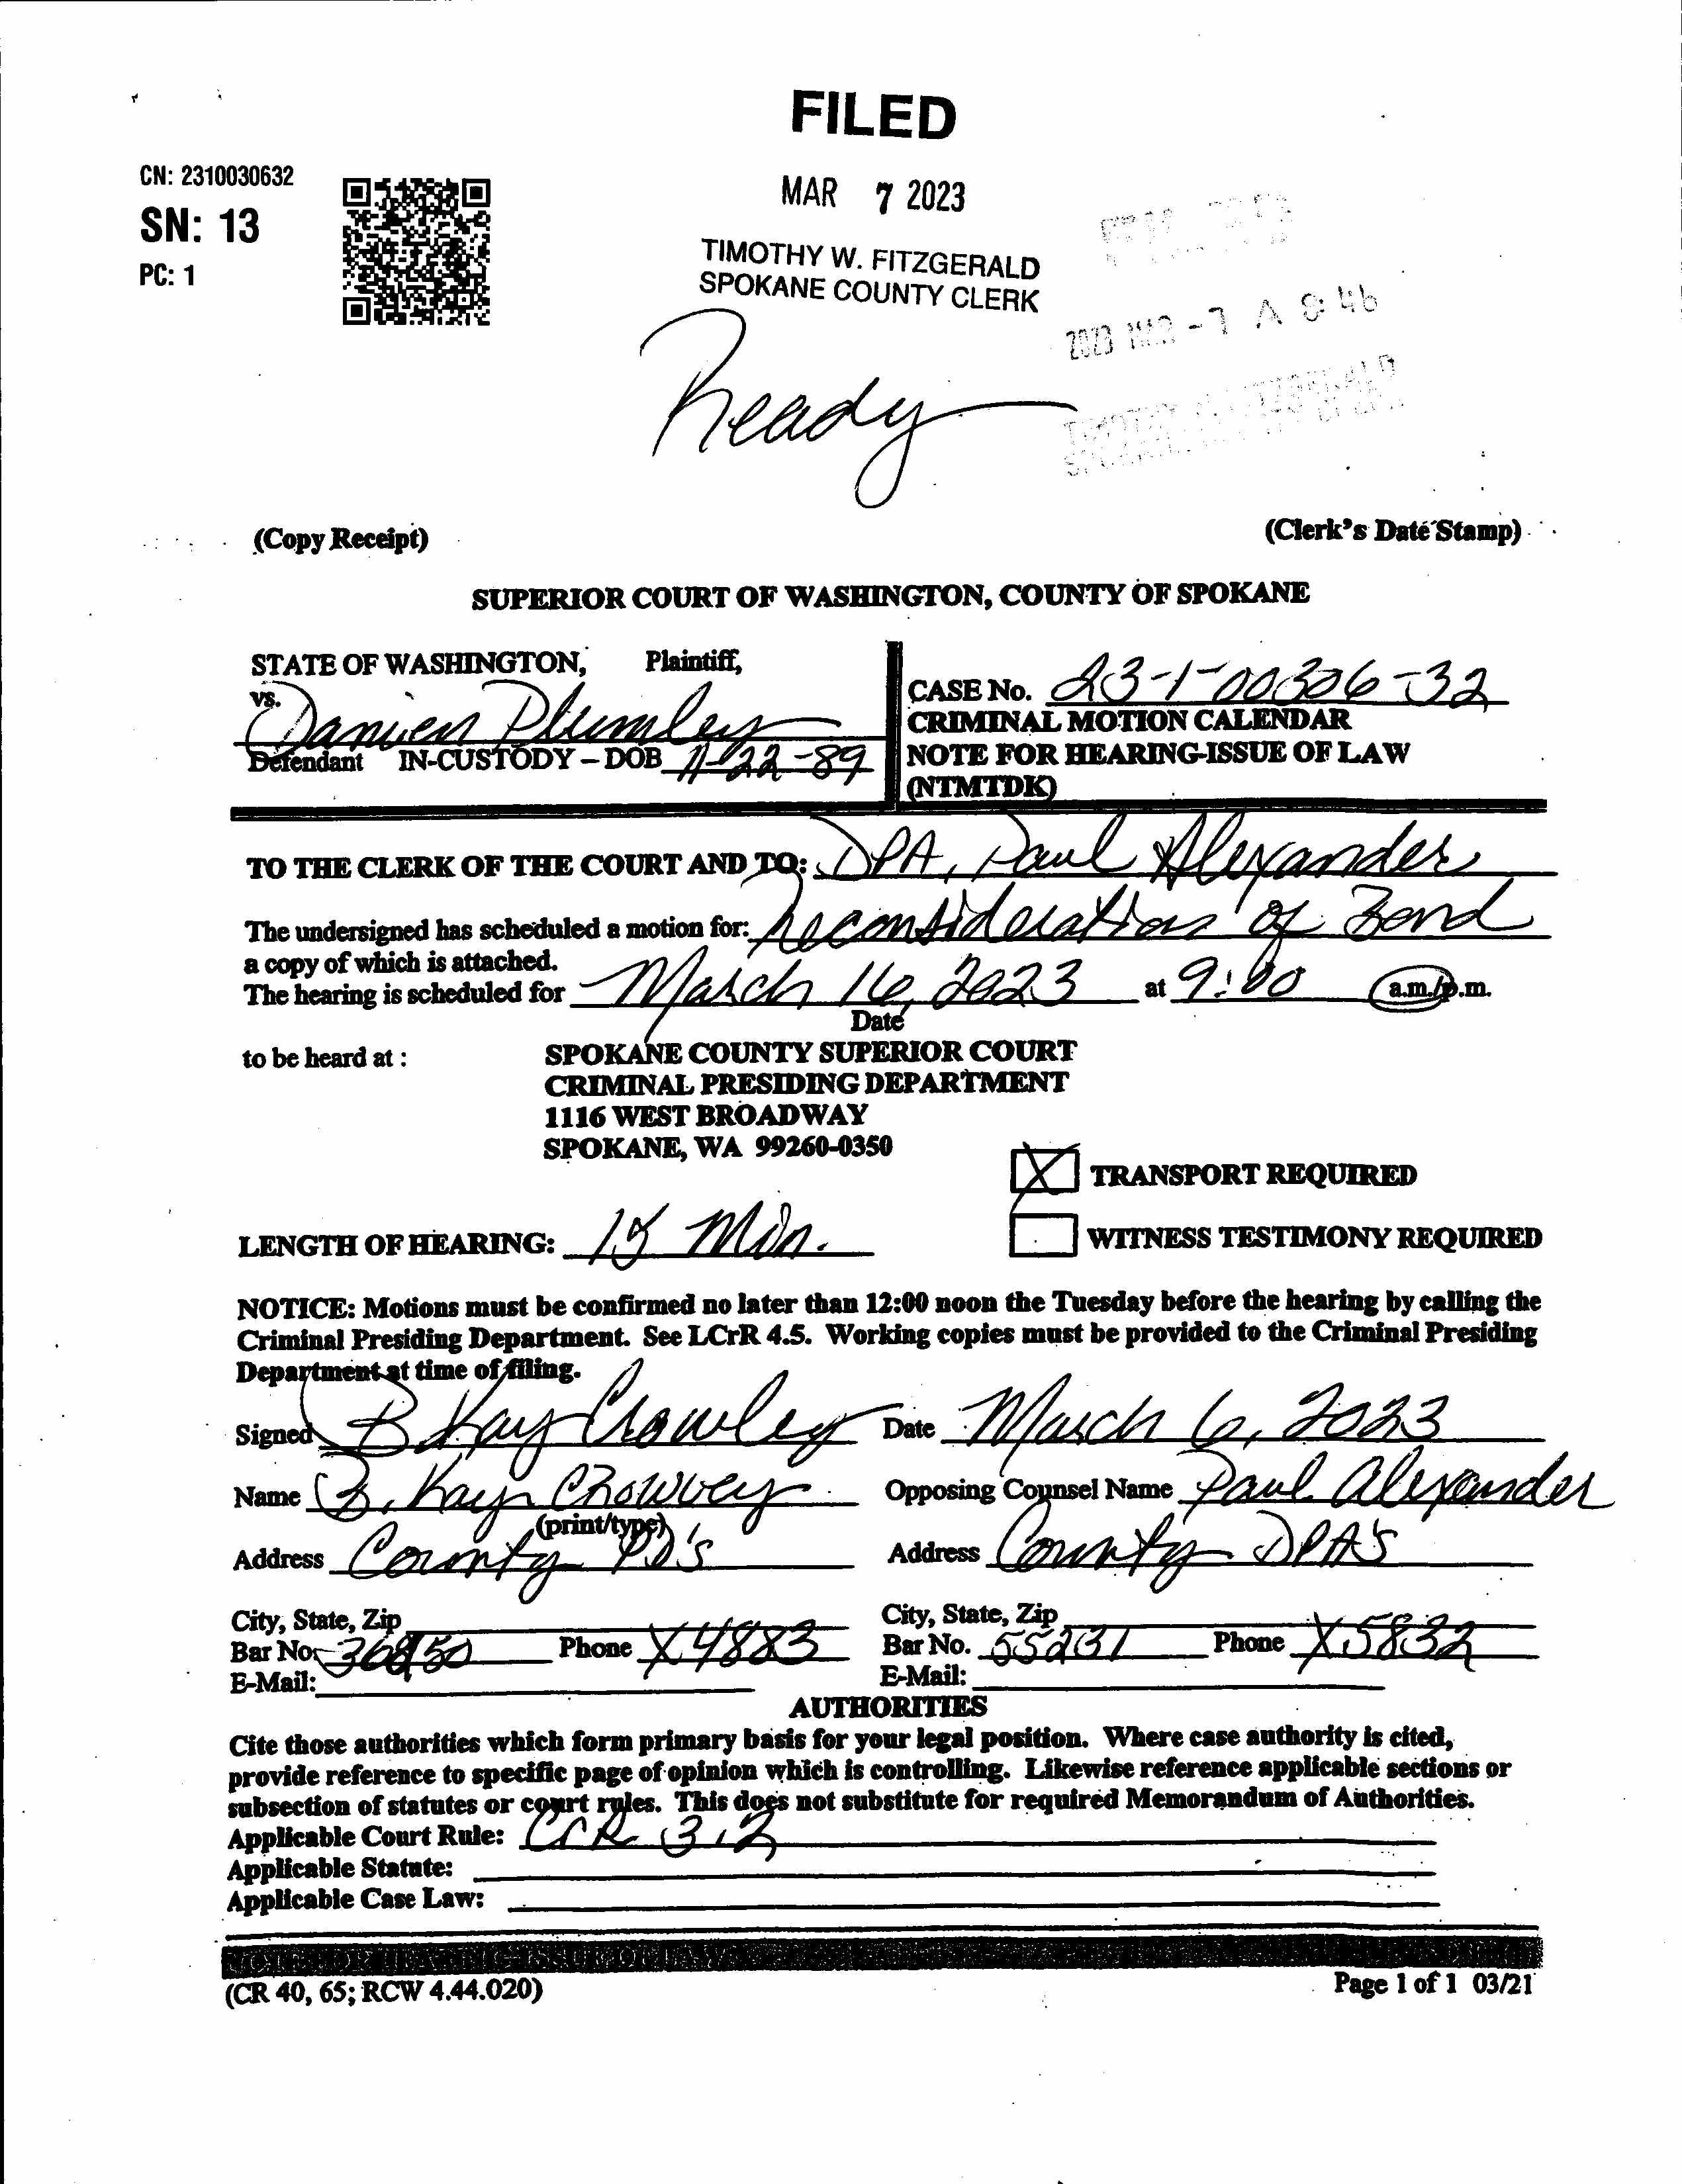 FILED
CN: 2310030632
SN: 13
PC: 1
MAR 7 2023
TIMOTHY W. FITZGERALD
SPOKANE COUNTY CLERK
2023 MAR -7 A 8:46
Ready
(Copy Receipt)
(Clerk's Date Stamp)
SUPERIOR COURT OF WASHINGTON, COUNTY OF SPOKANE
STATE OF WASHINGTON, Plaintiff,
vs.
Damien Plumley
Defendant IN-CUSTODY – DOB 11-22-89
CASE No. 23-1-00306-32
CRIMINAL MOTION CALENDAR
NOTE FOR HEARING-ISSUE OF LAW
(NTMTDK)
TO THE CLERK OF THE COURT AND TO: DPA, Paul Alexander
The undersigned has scheduled a motion for: Reconsideration of Bond
a copy of which is attached.
The hearing is scheduled for March 16, 2023 at 9:00 a.m./p.m.
Date
to be heard at :
SPOKANE COUNTY SUPERIOR COURT
CRIMINAL PRESIDING DEPARTMENT
1116 WEST BROADWAY
SPOKANE, WA 99260-0350
X TRANSPORT REQUIRED
LENGTH OF HEARING: 15 Min.
WITNESS TESTIMONY REQUIRED
NOTICE: Motions must be confirmed no later than 12:00 noon the Tuesday before the hearing by calling the
Criminal Presiding Department. See LCrR 4.5. Working copies must be provided to the Criminal Presiding
Department at time of filing.
Signed B Kay Crowley Date March 6, 2023
Name B. Kay Crowley Opposing Counsel Name Paul Alexander
(print/type)
Address County PD's Address County DPA's
City, State, Zip City, State, Zip
Bar No. Phone X4883 Bar No. 55231 Phone X5832
E-Mail: E-Mail:
AUTHORITIES
Cite those authorities which form primary basis for your legal position. Where case authority is cited,
provide reference to specific page of opinion which is controlling. Likewise reference applicable sections or
subsection of statutes or court rules. This does not substitute for required Memorandum of Authorities.
Applicable Court Rule: CrR 3.2
Applicable Statute:
Applicable Case Law:
(CR 40, 65; RCW 4.44.020)
Page 1 of 1 03/21